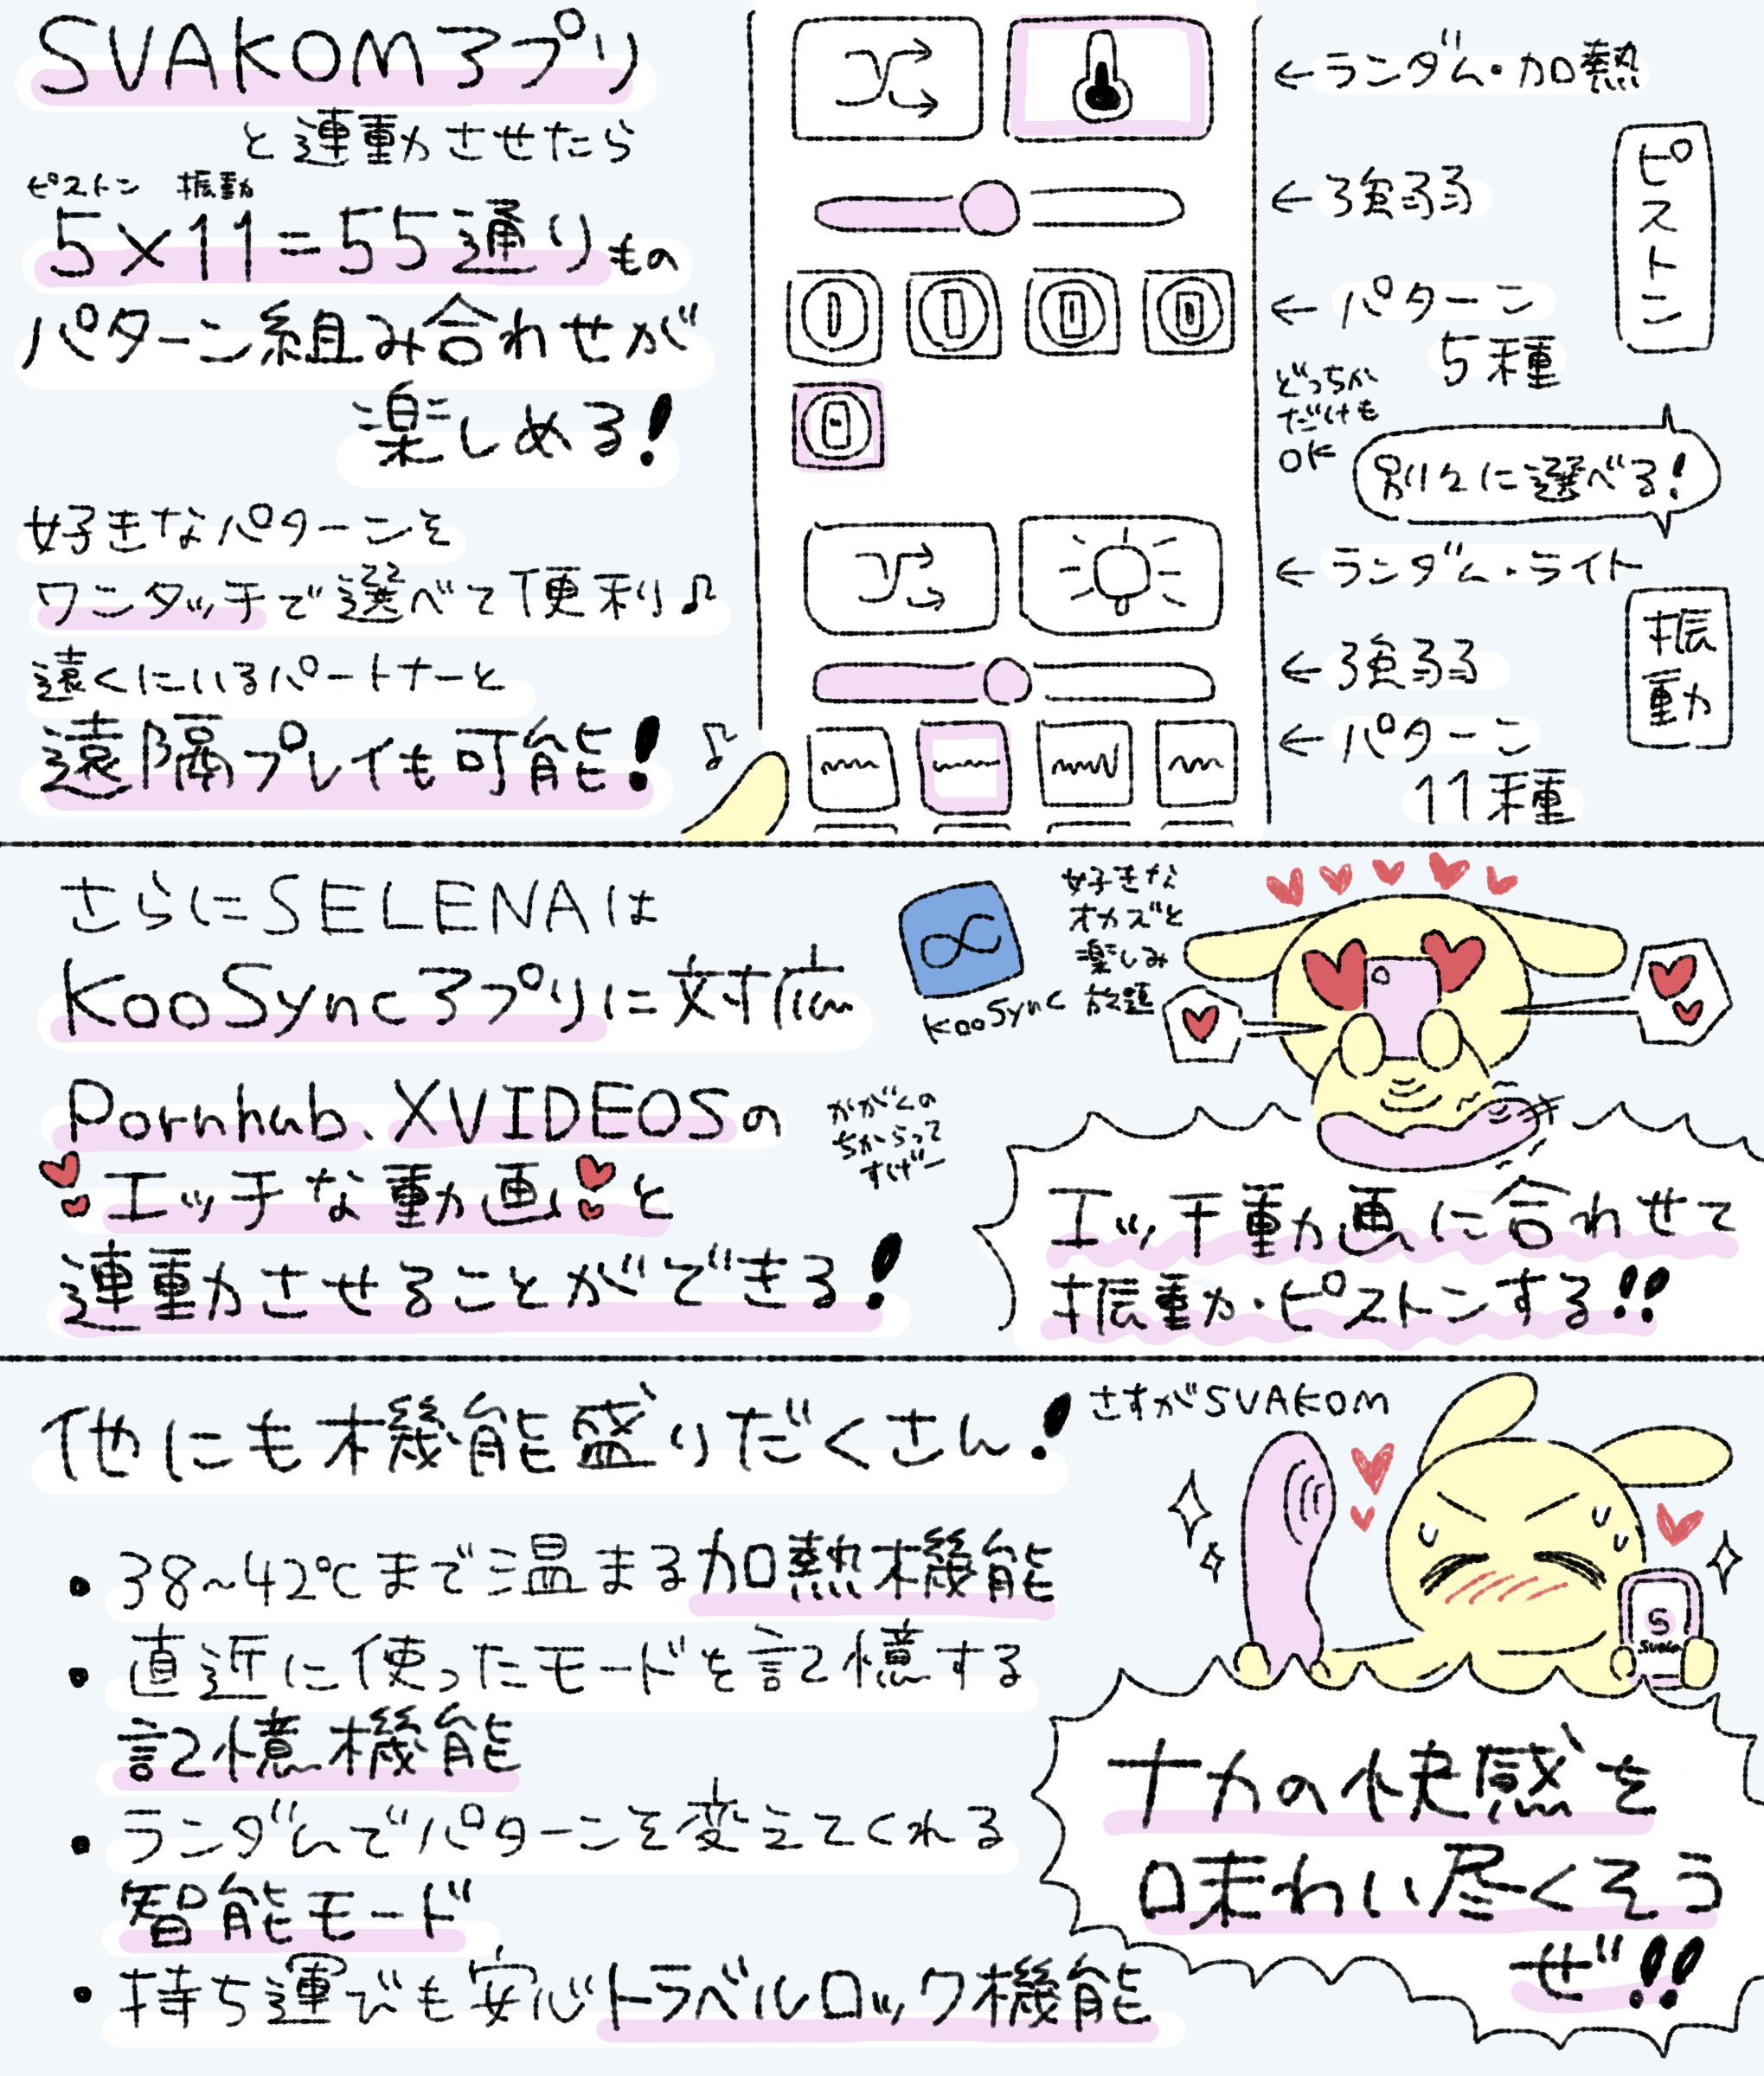 SVAKOMアプリ
と連動させたら
ピストン 振動
5×11=55通りもの
パターン組み合わせが
楽しめる!
好きなパターンを
ワンタッチで選べて便利♪
遠くにいるパートナーと
遠隔プレイも可能!
♪
←ランダム・加熱
←強弱
←パターン
5種
ピストン
どっちか
だけも
OK
別々に選べる!
←ランダム・ライト
←強弱
←パターン
11種
振動
さらにSELENAは
KooSyncアプリに対応
KooSync
好きな
オカズと
楽しみ
放題
Pornhub、XVIDEOSの
エッチな動画と
連動させることができる!
かがくの
ちからって
すげー
エッチ動画に合わせて
振動・ピストンする!!
他にも機能盛りだくさん!
さすがSVAKOM
・38~42℃まで温まる加熱機能
・直近に使ったモードを記憶する
記憶機能
・ランダムでパターンを変えてくれる
智能モード
・持ち運びも安心トラベルロック機能
S
SVAKOM
十力の快感を
味わい尽くそう
ぜ!!